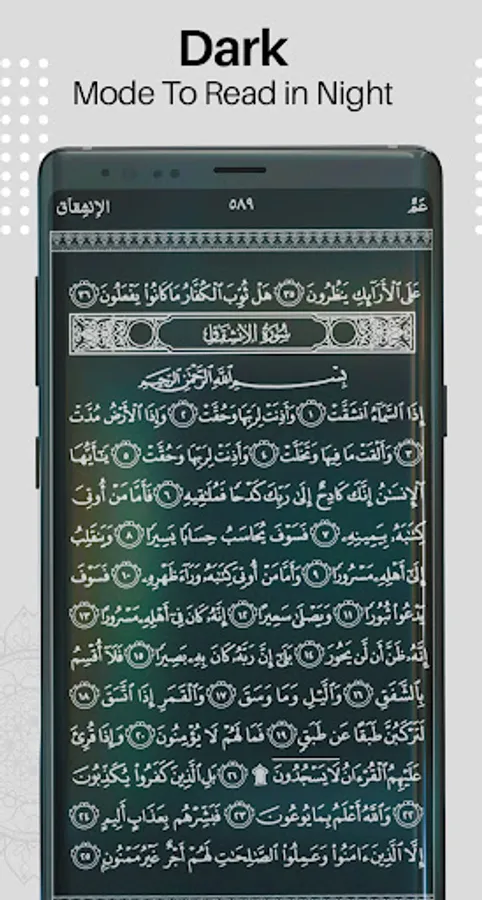 Dark
Mode To Read in Night
عَمَّ ٥٨٩ الإنشِقَاق
عَلَى ٱلْأَرَآئِكِ يَنظُرُونَ ٣٥ هَلْ ثُوِّبَ ٱلْكُفَّارُ مَا كَانُوا۟ يَفْعَلُونَ ٣٦
سُورَةُ الانشِقَاقِ
بِسْمِ ٱللَّهِ ٱلرَّحْمَٰنِ ٱلرَّحِيمِ
إِذَا ٱلسَّمَآءُ ٱنشَقَّتْ ١ وَأَذِنَتْ لِرَبِّهَا وَحُقَّتْ ٢ وَإِذَا ٱلْأَرْضُ مُدَّتْ
٣ وَأَلْقَتْ مَا فِيهَا وَتَخَلَّتْ ٤ وَأَذِنَتْ لِرَبِّهَا وَحُقَّتْ ٥ يَٰٓأَيُّهَا
ٱلْإِنسَٰنُ إِنَّكَ كَادِحٌ إِلَىٰ رَبِّكَ كَدْحًا فَمُلَٰقِيهِ ٦ فَأَمَّا مَنْ أُوتِىَ
كِتَٰبَهُۥ بِيَمِينِهِۦ ٧ فَسَوْفَ يُحَاسَبُ حِسَابًا يَسِيرًا ٨ وَيَنقَلِبُ
إِلَىٰٓ أَهْلِهِۦ مَسْرُورًا ٩ وَأَمَّا مَنْ أُوتِىَ كِتَٰبَهُۥ وَرَآءَ ظَهْرِهِۦ ١٠ فَسَوْفَ
يَدْعُوا۟ ثُبُورًا ١١ وَيَصْلَىٰ سَعِيرًا ١٢ إِنَّهُۥ كَانَ فِىٓ أَهْلِهِۦ مَسْرُورًا ١٣
إِنَّهُۥ ظَنَّ أَن لَّن يَحُورَ ١٤ بَلَىٰٓ إِنَّ رَبَّهُۥ كَانَ بِهِۦ بَصِيرًا ١٥ فَلَآ أُقْسِمُ
بِٱلشَّفَقِ ١٦ وَٱلَّيْلِ وَمَا وَسَقَ ١٧ وَٱلْقَمَرِ إِذَا ٱتَّسَقَ ١٨
لَتَرْكَبُنَّ طَبَقًا عَن طَبَقٍ ١٩ فَمَا لَهُمْ لَا يُؤْمِنُونَ ٢٠ وَإِذَا قُرِئَ
عَلَيْهِمُ ٱلْقُرْءَانُ لَا يَسْجُدُونَ ۩ ٢١ بَلِ ٱلَّذِينَ كَفَرُوا۟ يُكَذِّبُونَ
٢٢ وَٱللَّهُ أَعْلَمُ بِمَا يُوعُونَ ٢٣ فَبَشِّرْهُم بِعَذَابٍ أَلِيمٍ ٢٤
إِلَّا ٱلَّذِينَ ءَامَنُوا۟ وَعَمِلُوا۟ ٱلصَّٰلِحَٰتِ لَهُمْ أَجْرٌ غَيْرُ مَمْنُونٍۭ ٢٥